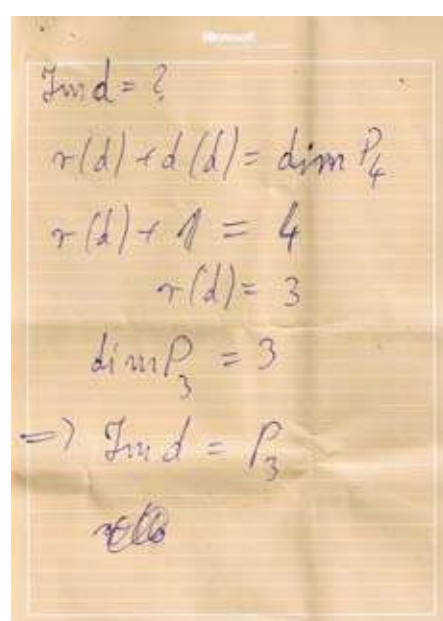 Microsoft
Im d = ?
r(d) + d(d) = dim P₄
r(d) + 1 = 4
r(d) = 3
dim P₃ = 3
=> Im d = P₃